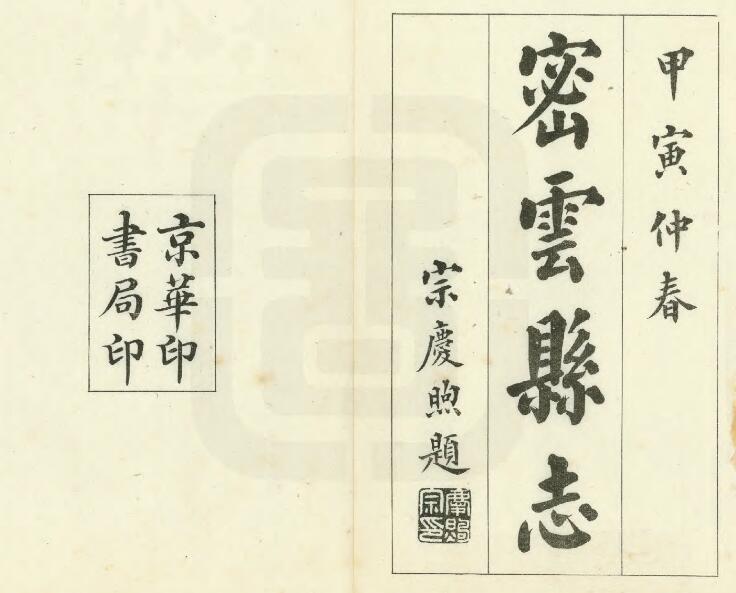 甲寅仲春
密雲縣志
宗慶煦題
慶煦
宗印
京華印
書局印